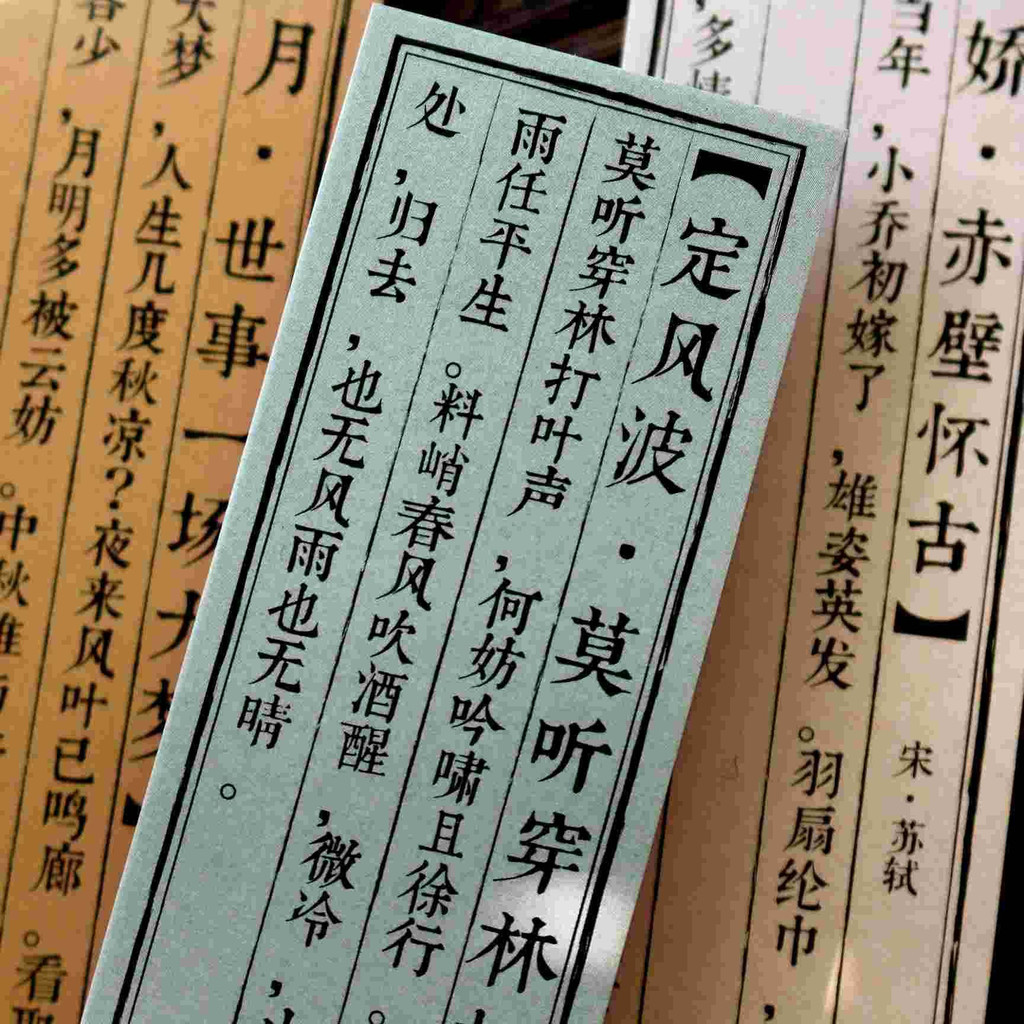 娇·赤壁怀古】 宋·苏轼
当年，小乔初嫁了，雄姿英发。羽扇纶巾，
多情
【定风波·莫听穿林
莫听穿林打叶声，何妨吟啸且徐行。
雨任平生。料峭春风吹酒醒，微冷，
处，归去，也无风雨也无晴。
月·世事一场大梦】
大梦，人生几度秋凉？夜来风叶已鸣廊。看取
少，月明多被云妨。中秋谁